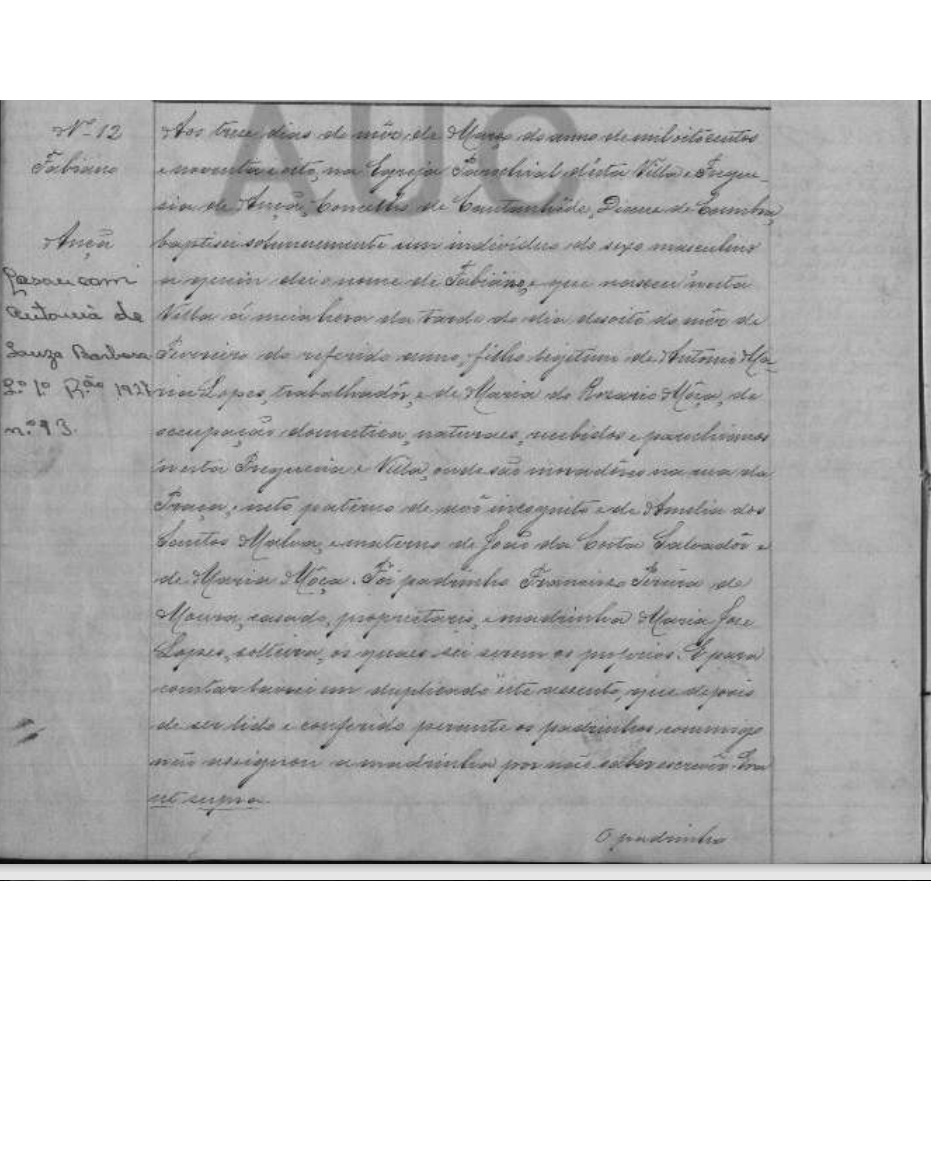 AUC
Nº 12
Fabiano
Ançã
Casou com
Antonia de
Souza Barbosa
1º 1927
n.º 93.
Aos treze dias do mêz de Março do anno de mil oitocentos
e noventa e oito, na Egreja Parochial d'esta Villa e Fregue-
sia de Ançã, Concelho de Cantanhêde, Diocese de Coimbra,
baptisei solemnemente um individuo do sexo masculino
a quem dei o nome de Fabiano, e que nasceu n'esta
Villa á meia hora da tarde do dia desoito do mêz de
Fevereiro do referido anno, filho legitimo de António Ma-
ria Lopes, trabalhadôr, e de Maria do Rosario Môça, de
occupação domestica, naturaes, recebidos e parochianos
n'esta Freguesia e Villa, onde são moradôres na rua da
Praça, neto paterno de avô incognito e de Amelia dos
Santos Malva, e materno de João da Costa Salvadôr e
de Maria Môça. Foi padrinho Francisco Pereira de
Moura, casado, proprietario, e madrinha Maria José
Lopes, solteira, os quaes sei serem os proprios. E para
constar lavrei em duplicado este assento, que depois
de ser lido e conferido perante os padrinhos commigo
não assignou a madrinha por não saber escrever. Era
ut supra.
O padrinho